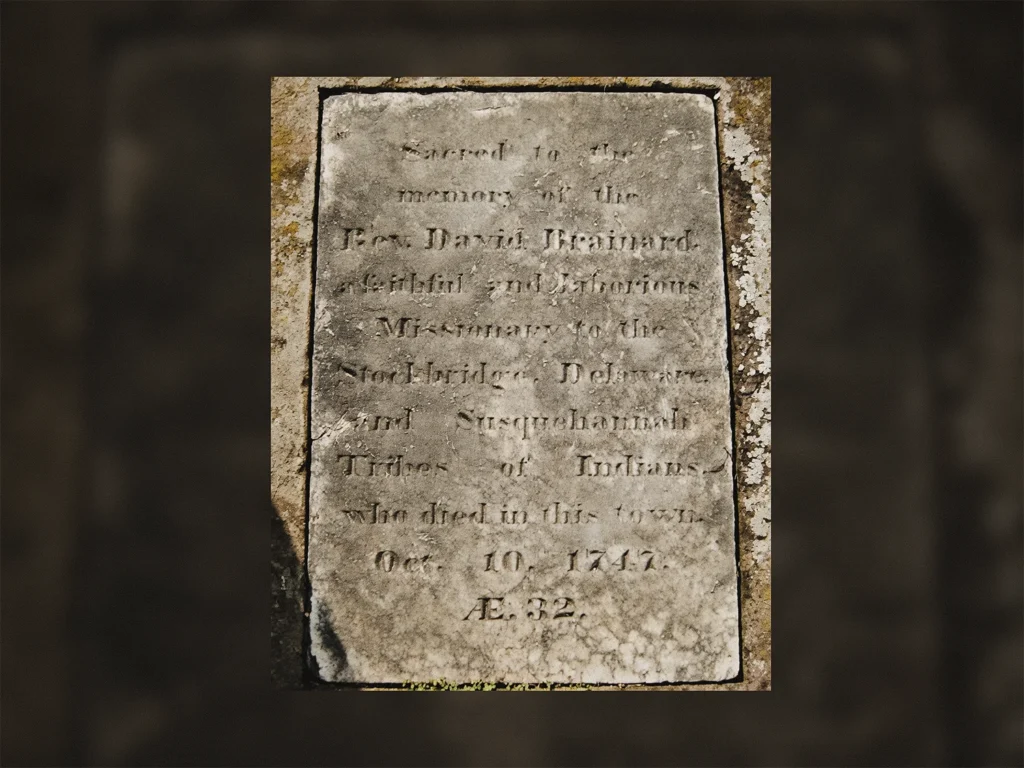 Sacred to the
memory of the
Rev. David Brainard.
a faithful and laborious
Missionary to the
Stockbridge, Delaware
and Susquehannah
Tribes of Indians
who died in this town.
Oct. 10. 1747.
Æ. 32.